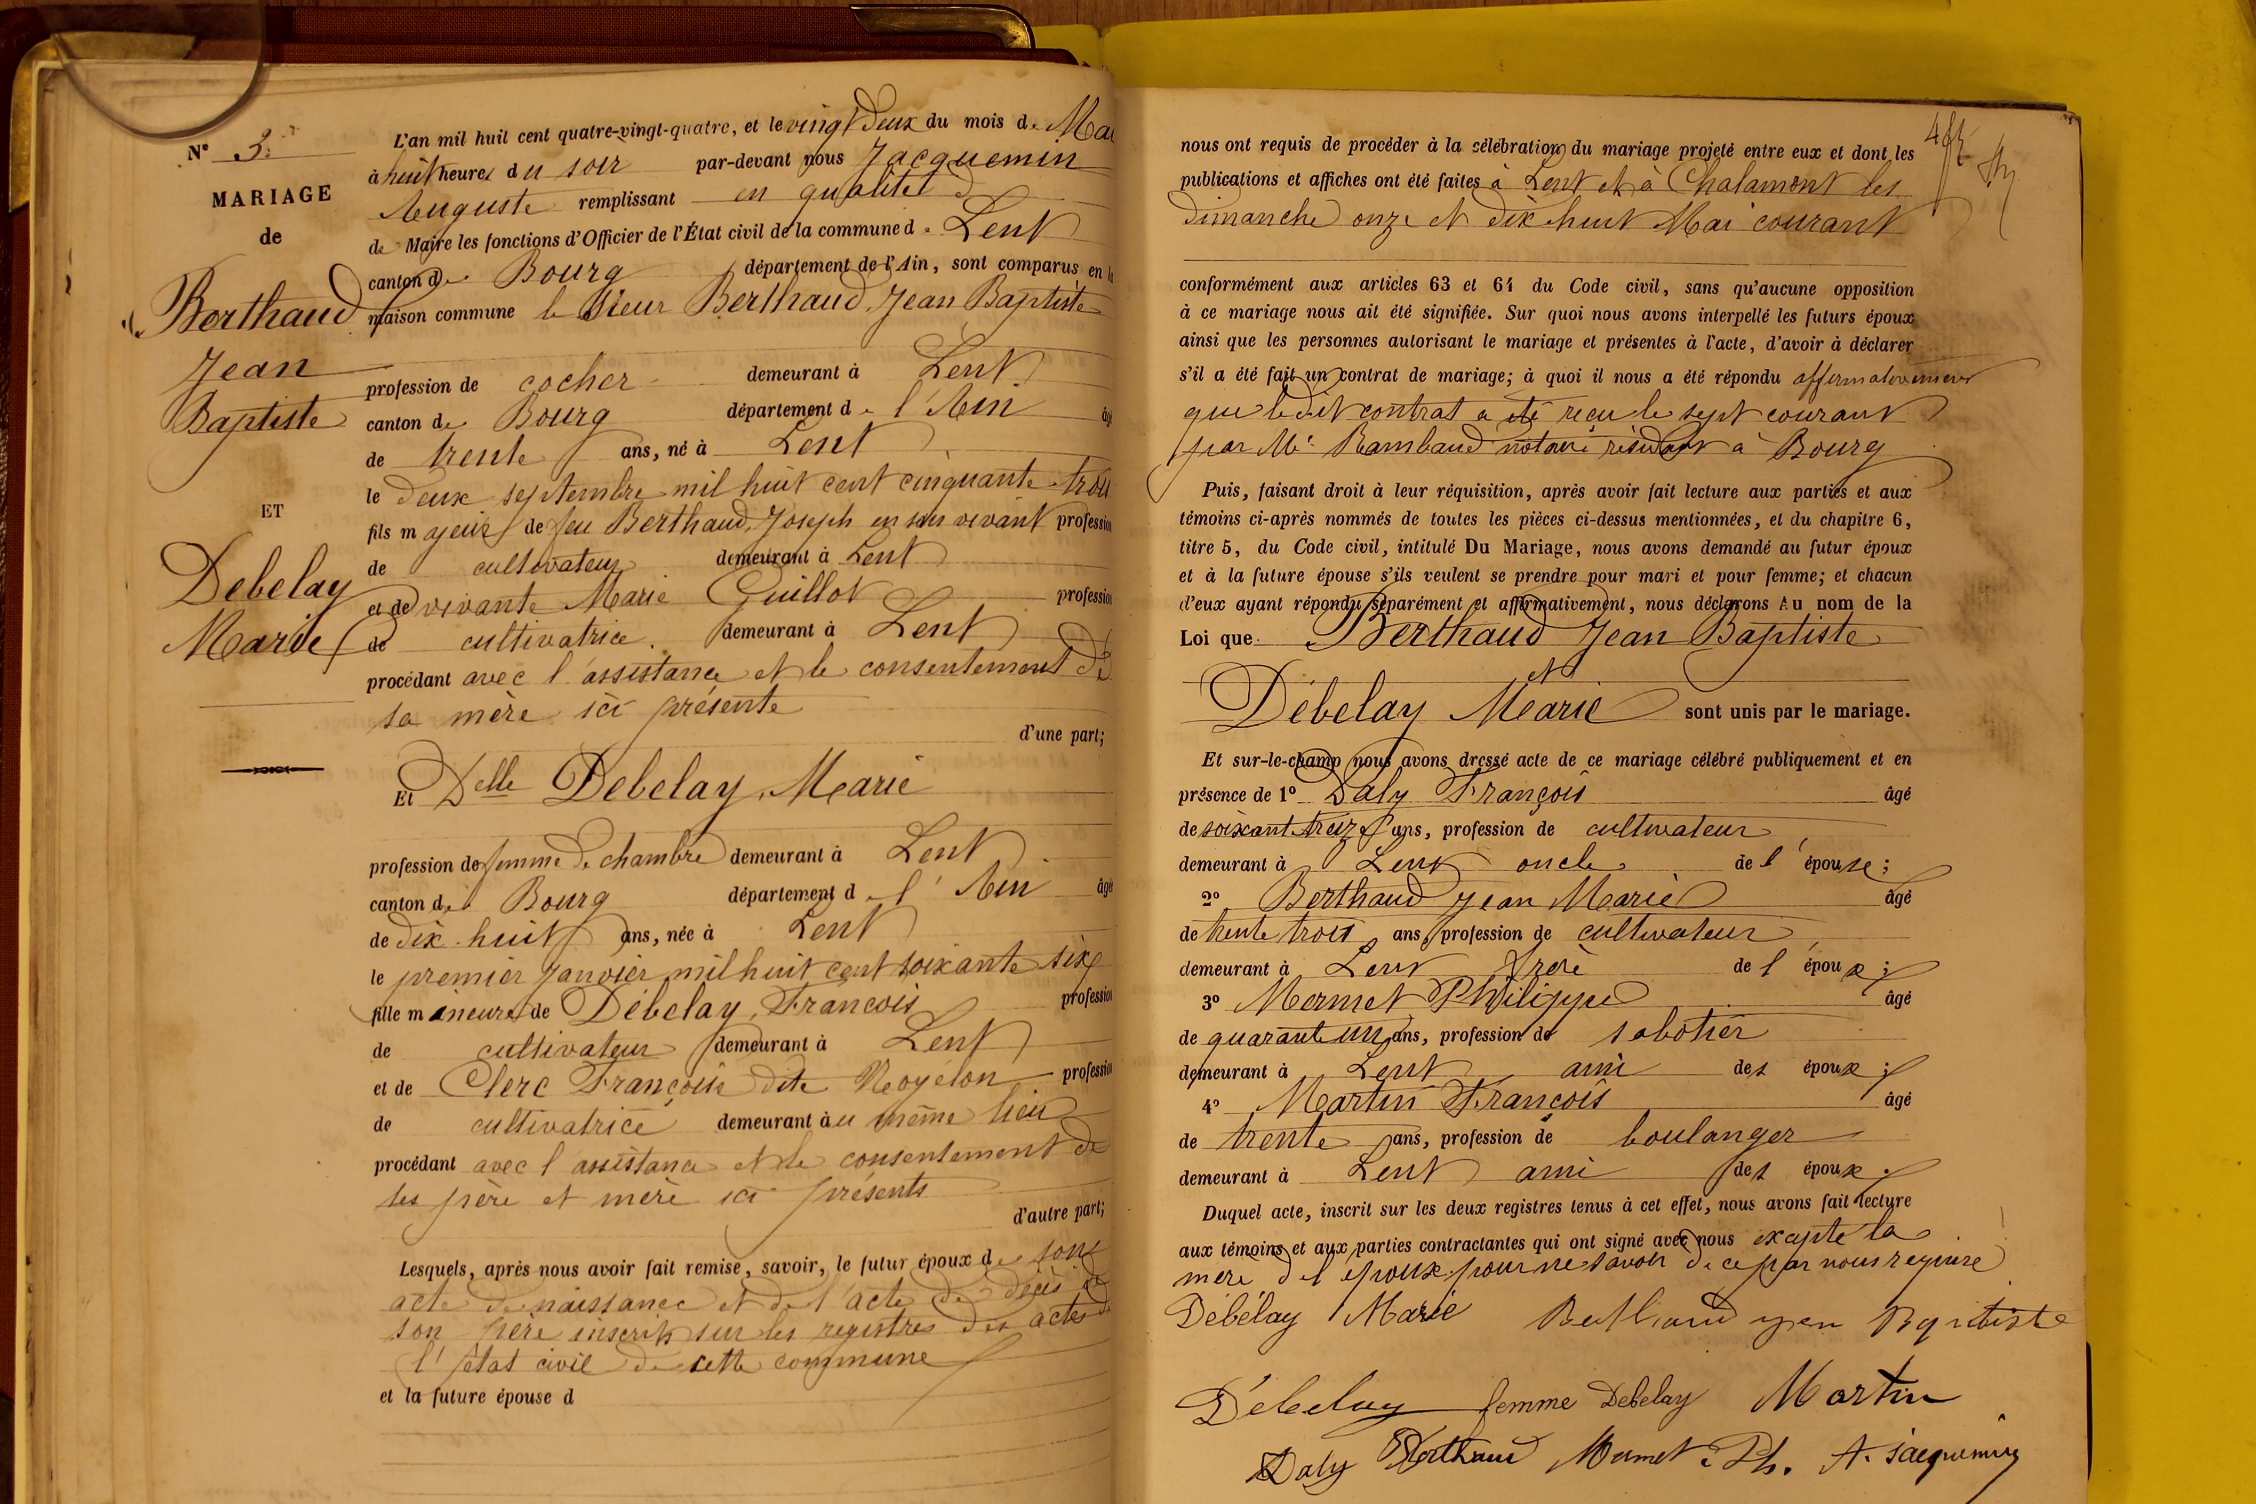 N° 3
MARIAGE
de
Berthaud
Jean
Baptiste
ET
Debelay
Marie
L'an mil huil cent quatre-vingt-quatre, et le vingt deux du mois de Mai
à huit heures du soir par-devant nous Jacquemin
Auguste remplissant en qualité
de Maire les fonctions d'Officier de l'État civil de la commune de Lent
canton de Bourg département de l'Ain, sont comparus en la
maison commune le Sieur Berthaud, Jean Baptiste
profession de cocher demeurant à Lent
canton de Bourg département de l'Ain âgé
de trente ans, né à Lent
le deux septembre mil huit cent cinquante trois
fils majeur de feu Berthaud, Joseph en son vivant profession
de cultivateur demeurant à Lent
et de vivante Marie Guillot profession
de cultivatrice demeurant à Lent
procédant avec l'assistance et le consentement de
sa mère ici présente
d'une part;
Et Delle Debelay, Marie
profession de femme de chambre demeurant à Lent
canton de Bourg département de l'Ain âgé
de dix-huit ans, née à Lent
le premier janvier mil huit cent soixante six
fille mineure de Débelay, François profession
de cultivateur demeurant à Lent
et de Clerc Françoise dite profession
de cultivatrice demeurant au même lieu
procédant avec l'assistance et le consentement de
ses père et mère ici présents
d'autre part;
Lesquels, après nous avoir fait remise, savoir, le futur époux de son
acte de naissance et de l'acte de décès de
son père inscrits sur les registres des actes de
l'état civil de cette commune
et la future épouse d
nous ont requis de procéder à la célébration du mariage projeté entre eux et dont les
publications et affiches ont été faites à Lent et à Chalamont les
dimanche onze et dix huit Mai courant
conformément aux articles 63 et 64 du Code civil, sans qu'aucune opposition
à ce mariage nous ait été signifiée. Sur quoi nous avons interpellé les futurs époux
ainsi que les personnes autorisant le mariage et présentes à l'acte, d'avoir à déclarer
s'il a été fait un contrat de mariage; à quoi il nous a été répondu affirmativement
que ledit contrat a été reçu le sept courant
par Me Rambaud notaire résidant à Bourg
Puis, faisant droit à leur réquisition, après avoir fait lecture aux parties et aux
témoins ci-après nommés de toutes les pièces ci-dessus mentionnées, et du chapitre 6,
titre 5, du Code civil, intitulé Du Mariage, nous avons demandé au futur époux
et à la future épouse s'ils veulent se prendre pour mari et pour femme; et chacun
d'eux ayant répondu séparément et affirmativement, nous déclarons Au nom de la
Loi que Berthaud Jean Baptiste
et
Débelay Marie sont unis par le mariage.
Et sur-le-champ nous avons dressé acte de ce mariage célébré publiquement et en
présence de 1° Daly François âgé
de soixant treize ans, profession de cultivateur
demeurant à Lent oncle de l'épouse;
2° Berthaud Jean Marie âgé
de trente trois ans, profession de cultivateur
demeurant à Lent frère de l'époux;
3° Mermet Philippe âgé
de quarante un ans, profession de sabotier
demeurant à Lent ami des époux;
4° Martin François âgé
de trente ans, profession de boulanger
demeurant à Lent ami des époux.
Duquel acte, inscrit sur les deux registres tenus à cet effet, nous avons fait lecture
aux témoins et aux parties contractantes qui ont signé avec nous excepté la
mère de l'époux pour ne savoir de ce par nous requise
Débélay Marie Berthaud jean Baptiste
Débelay femme Debelay Martin
Daly Berthaud Mermet Ph. A. Jacquemin